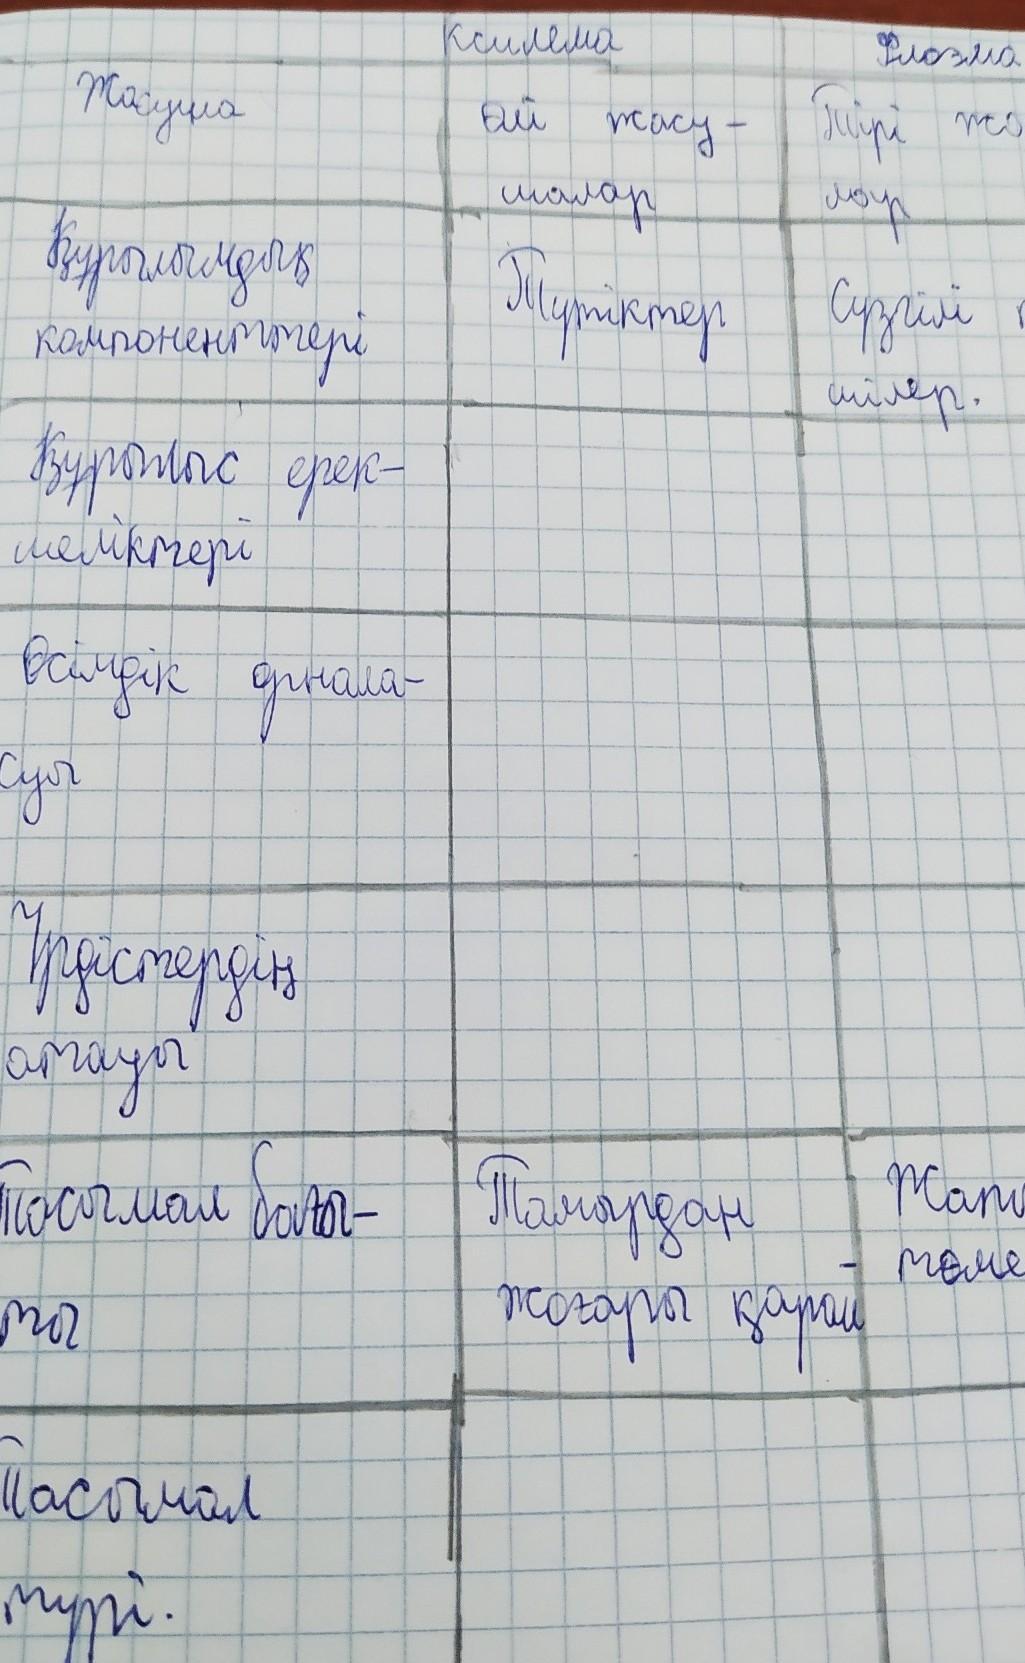 Ксилема Флоэма
Жасуша
Өлі жасу-
шалар
Тірі жа
лар
Құрылымдық
компоненттері
Түтіктер
Сүзгілі
шілер.
Құрылыс ерек-
шеліктері
Өсімдік орнала-
суы
Үрдістердің
атауы
Тасымал бағы-
ты
Тамырдан
жоғары қарай
Жапы
- төме
Тасымал
түрі.